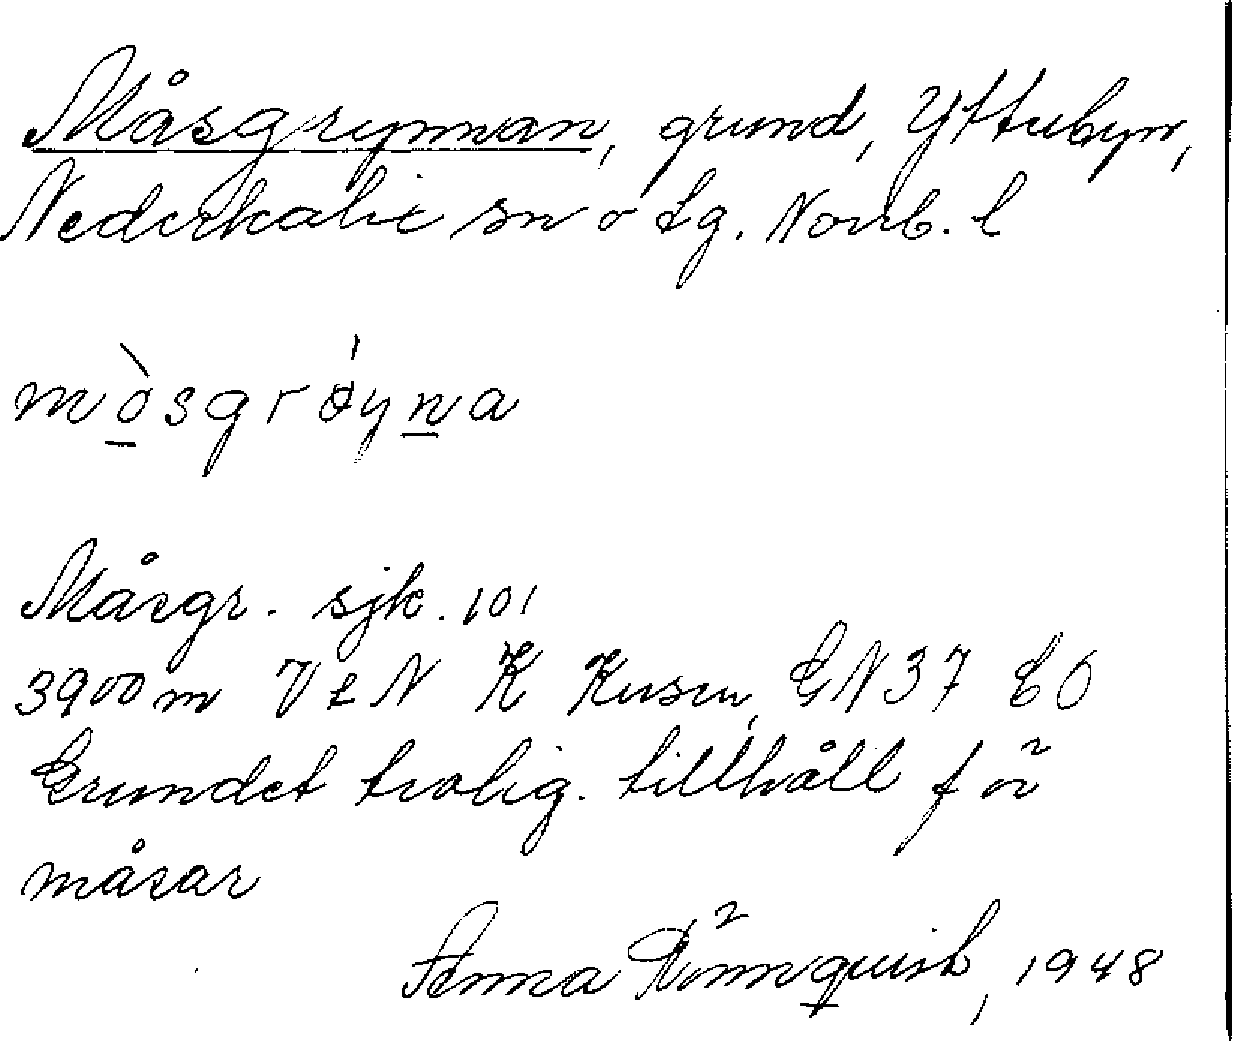 Måsgrynnan, grund, Ytterbyn,
Nederkalix sn o tg. Norrb. l
mòsgrǿyna
Måsgr. sjk. 101
3900 m V t N K Kusen, GN37 CÖ
Grundet trolig. tillhåll för
måsar
Anna Rönnquist, 1948